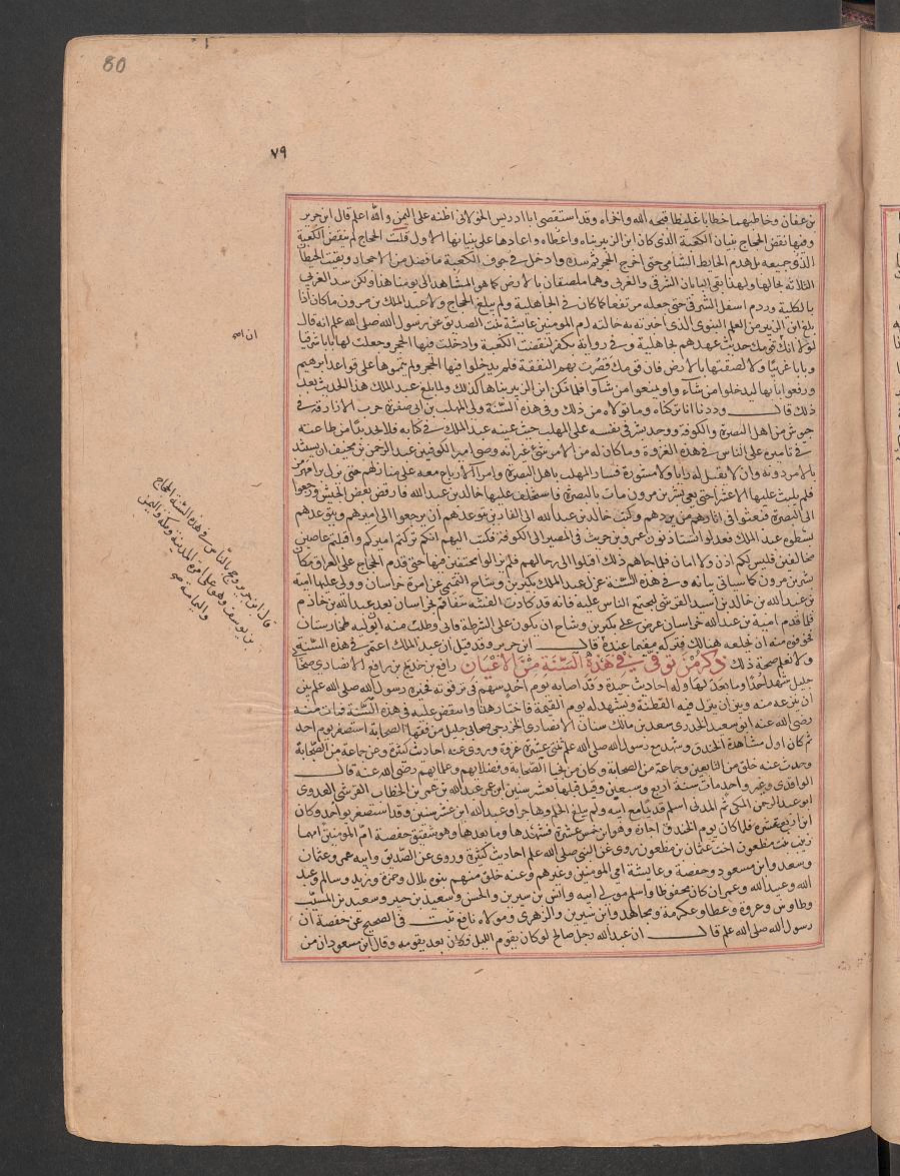 80
٧٩
بن عفان وخاطبهما خطابا غليظا قبحه الله واخزاه وقد استقصى ابا ادريس الخولانى اظنه على اليمن والله اعلم قال ابن جرير
وفيها نقض الحجاج بنيان الكعبة الذى كان ابن الزبير بناه واعادها على بنيانها الاول قلت الحجاج لم ينقض الكعبة
الذى جميعه بل هدم الحايط الشامى حتى اخرج الحجر ثم سده وادخل فى جوف الكعبة ما فضل من الاحجار وبقيت الحيطان
الثلاثه بحالها ولهذا بقى البابان الشرقى والغربى وهما ملصقان بالارض كما هو المشاهد الى يومنا هذا ولكن سد الغربى
بالكلية وردم اسفل الشرقى حتى جعله مرتفعا كما كان فى الجاهلية ولم يبلغ الحجاج ولا عبد الملك بن مرون ما كان
بلغ ابن الزبير من العلم النبوى الذى اخبرته به خالته ام المومنين عايشة بنت الصديق عن رسول الله صلى الله علم انه قال
لولا ان قومك حديث عهدهم بجاهلية وفى رواية بكفر لنقضت الكعبة وادخلت فيها الحجر وجعلت لها بابا شرقيا
وبابا غربيا ولالصقتها بالارض فان قومك قصرت بهم النفقة فلم يدخلوا فيها الحجر ولم يتموها على قواعد ابرهيم
ورفعوا بابها ليدخلوا من شآء واو يمنعوا من شآء فلما تمكن ابن الزبير بناها كذلك ولما بلغ عبد الملك هذا الحديث بعد
ذلك قال وددنا انا تركناه وما تولاه من ذلك وفى هذه السنة ولى المهلب بن ابى صفرة حرب الازارقة فى
جيوش من اهل البصرة والكوفة ووجد بشر فى نفسه على المهلب حيث عينه عبد الملك فى كتابه فلم يجد بدا من طاعته
فى تاميره على الناس فى هذه الغزوة وما كان له من الامر شئ غير انه وصى امير الكوفيين عبد الرحمن بن مخنف ان يستبد
بالامر دونه وان لا يقبل له رايا ولا مشورة فسار المهلب باهل البصرة وامرآ الارباع معه على منازلهم حتى نزل برامهرمز
فلم يلبث عليها الا عشرا حتى نعى بشر بن مرون مات بالبصرة فاستخلف عليها خالد بن عبد الله فارفض بعض الجيش ورجعوا
الى البصرة فبعثوا فى اثارهم من يردهم وكتب خالد بن عبد الله الى الفارين يتوعدهم ان يرجعوا الى اميرهم ويتوعدهم
بسطوة عبد الملك فعدلوا يستاذنون عمرو بن حريث فى المصير الى الكوفة فكتب اليهم انكم تركتم اميركم واقبلتم عاصين
مخالفين فليس لكم اذن ولا امان فلما جاهم ذلك اقبلوا الى رحالهم فلم يزالوا مختفين فيها حتى قدم الحجاج على العراق مكان
بشر بن مرون كما سياتى بيانه وفى هذه السنة عزل عبد الملك بكير بن وشاح التميمى عن امرة خراسان وولى عليها امية
بن عبد الله بن خالد بن اسيد القرشى ليجتمع الناس عليه فانه قد كادت الفتنه تتفاقم بخراسان بعد عبد الله بن خازم
فلما قدم امية بن عبد الله خراسان عرض على بكير بن وشاح ان يكون على الشرطة فابى وطلب منه ان يوليه طخارستان
فخوفوه منه ان يخلعه هنالك فتركه مقيما عنده قال ابن جرير وقد قيل ان عبد الملك اعتمر فى هذه السنة
ولا نعلم صحة ذلك ذكر من توفى فى هذه السنة من الاعيان رافع بن خديج بن رافع الانصارى صحابى
جليل شهد احدا وما بعدها وله احاديث جيدة وقد اصابه يوم احد سهم فى ترقوته فخيره رسول الله صلى الله علم بين
ان ينزعه منه وبين ان يترك فيه القطنة ويشهد له يوم القيمة فاختار هذا وانتقض عليه فى هذه السنة فمات منه
رضى الله عنه ابو سعيد الخدرى سعد بن مالك بن سنان الانصارى الخزرجى صحابى جليل من فقهآ الصحابة استصغر يوم احد
ثم كان اول مشاهده الخندق وشهد مع رسول الله صلى الله علم ثنتى عشرة غزوة وروى عنه احاديث كثيرة وعن جماعة من الصحابة
وحدث عنه خلق من التابعين وجماعة من الصحابة وكان من نجبآ الصحابة وفضلايهم وعلمايهم رضى الله عنه قال
الواقدى وغير واحد مات سنة اربع وسبعين وقيل قبلها بعشر سنين ابن عمر عبد الله بن عمر بن الخطاب القرشى العدوى
ابو عبد الرحمن المكى ثم المدنى اسلم قديما مع ابيه ولم يبلغ الحلم وهاجر ابو عبد الله ابن عشر سنين وقد استصغر يوم احد وكان
ابن اربع عشرة فلما كان يوم الخندق اجازه وهو ابن خمس عشرة فشهدها وما بعدها وهو شقيق حفصة ام المومنين امهما
زينب بنت مظعون اخت عثمان بن مظعون روى عن النبى صلى الله علم احاديث كثيرة وروى عن الصديق وابيه عمر وعثمان
وسعد وابن مسعود وحفصة وعايشة امى المومنين وغيرهم وعنه خلق منهم بنوه بلال وحمزة وزيد وسالم وعبد
الله وعبيد الله وعمر ان كان محفوظا واسلم مولى ابيه وانس بن سيرين والحسن وسعيد بن جبير وسعيد بن المسيب
وطاوس وعروة وعطا وعكرمة ومجاهد وابن سيرين والزهرى ومولاه نافع ثبت فى الصحيح عن حفصة ان
رسول الله صلى الله علم قال ان عبد الله رجل صالح لو كان يقوم الليل فكان بعد يقومه وقال ابن مسعود ان من
قال ابن جرير وحج بالناس فى هذه السنة الحجاج
بن يوسف وهو على امرة المدينة ومكة واليمن
واليمامة صح